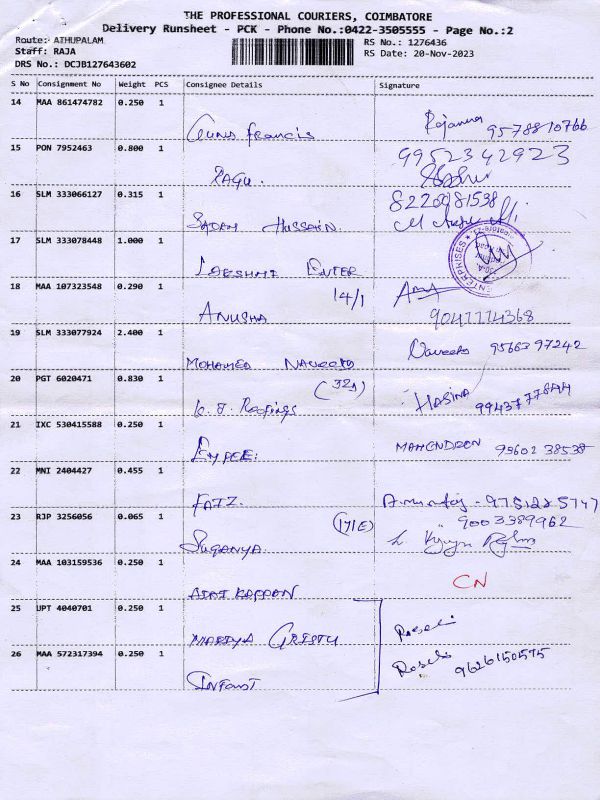 THE PROFESSIONAL COURIERS, COIMBATORE
Delivery Runsheet - PCK - Phone No.:0422-3505555 - Page No.:2
Route: ATHUPALAM RS No.: 1276436
Staff: RAJA RS Date: 20-Nov-2023
DRS No.: DCJB127643602
S No Consignment No Weight PCS Consignee Details Signature
14 MAA 861474782 0.250 1
Francis 9578810766
15 PON 7952463 0.800 1 9952342923
RAGU.
16 SLM 333066127 0.315 1 8220981538
SADAM HUSSAIN.
17 SLM 333078448 1.000 1 ENTERPRISES
LAKSHMI ENTER
18 MAA 107323548 0.290 1 14/1
ANUSHA 9047774368
19 SLM 333077924 2.400 1
MOHAMED NAVEETH Naveeth 9566397242
20 PGT 6020471 0.830 1 (321)
Roofings HASINA
21 IXC 530415588 0.250 1
MAHENDRAN 9960238538
22 MNI 2404427 0.455 1
FAIZ. 9751225747
23 RJP 3256056 0.065 1 (171E) 9003389962
SUGANYA
24 MAA 103159536 0.250 1 CN
25 UPT 4040701 0.250 1
26 MAA 572317394 0.250 1
9626150575